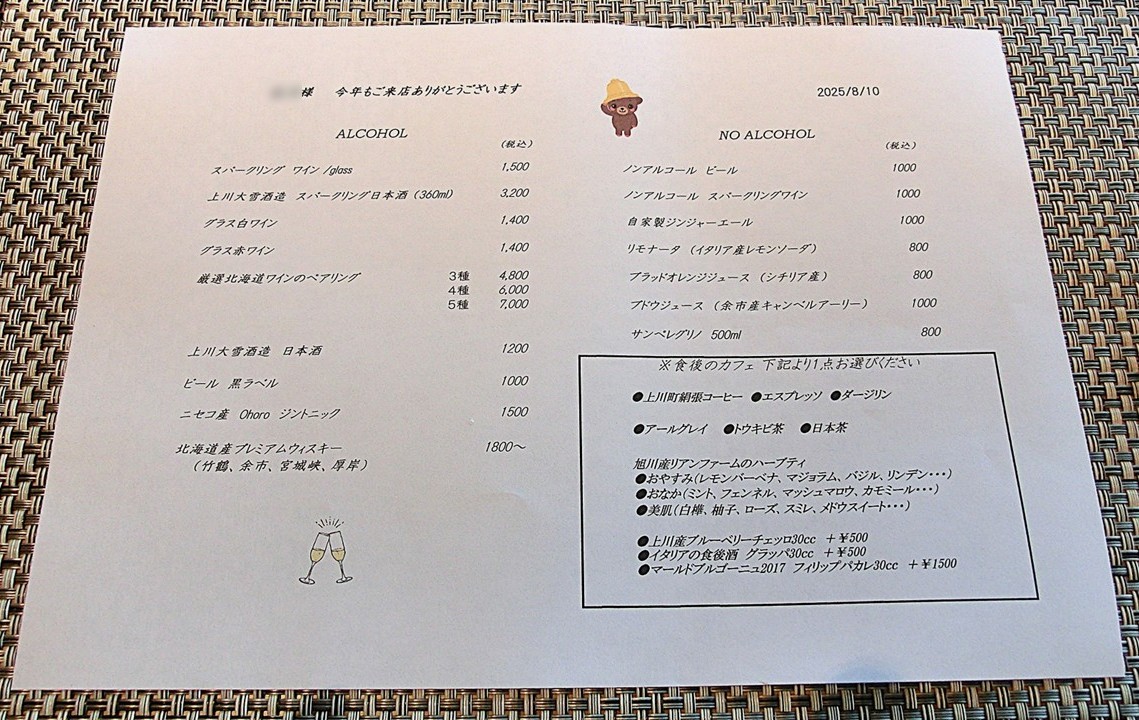 様 今年もご来店ありがとうございます
2025/8/10
ALCOHOL
(税込)
スパークリング ワイン /glass 1,500
上川大雪酒造 スパークリング日本酒 (360ml) 3,200
グラス白ワイン 1,400
グラス赤ワイン 1,400
厳選北海道ワインのペアリング 3種 4,800
4種 6,000
5種 7,000
上川大雪酒造 日本酒 1200
ビール 黒ラベル 1000
ニセコ産 Ohoro ジントニック 1500
北海道産プレミアムウィスキー 1800～
(竹鶴、余市、宮城峡、厚岸)
NO ALCOHOL
(税込)
ノンアルコール ビール 1000
ノンアルコール スパークリングワイン 1000
自家製ジンジャーエール 1000
リモナータ (イタリア産レモンソーダ) 800
ブラッドオレンジジュース (シチリア産) 800
ブドウジュース (余市産キャンベルアーリー) 1000
サンペレグリノ 500ml 800
※食後のカフェ 下記より1点お選びください
●上川町絹張コーヒー ●エスプレッソ ●ダージリン
●アールグレイ ●トウキビ茶 ●日本茶
旭川産リアンファームのハーブティ
●おやすみ(レモンバーベナ、マジョラム、バジル、リンデン・・・)
●おなか(ミント、フェンネル、マッシュマロウ、カモミール・・・)
●美肌(白樺、柚子、ローズ、スミレ、メドウスイート・・・)
●上川産ブルーベリーチェッロ30cc ＋￥500
●イタリアの食後酒 グラッパ30cc ＋￥500
●マールドブルゴーニュ2017 フィリップパカレ30cc ＋￥1500